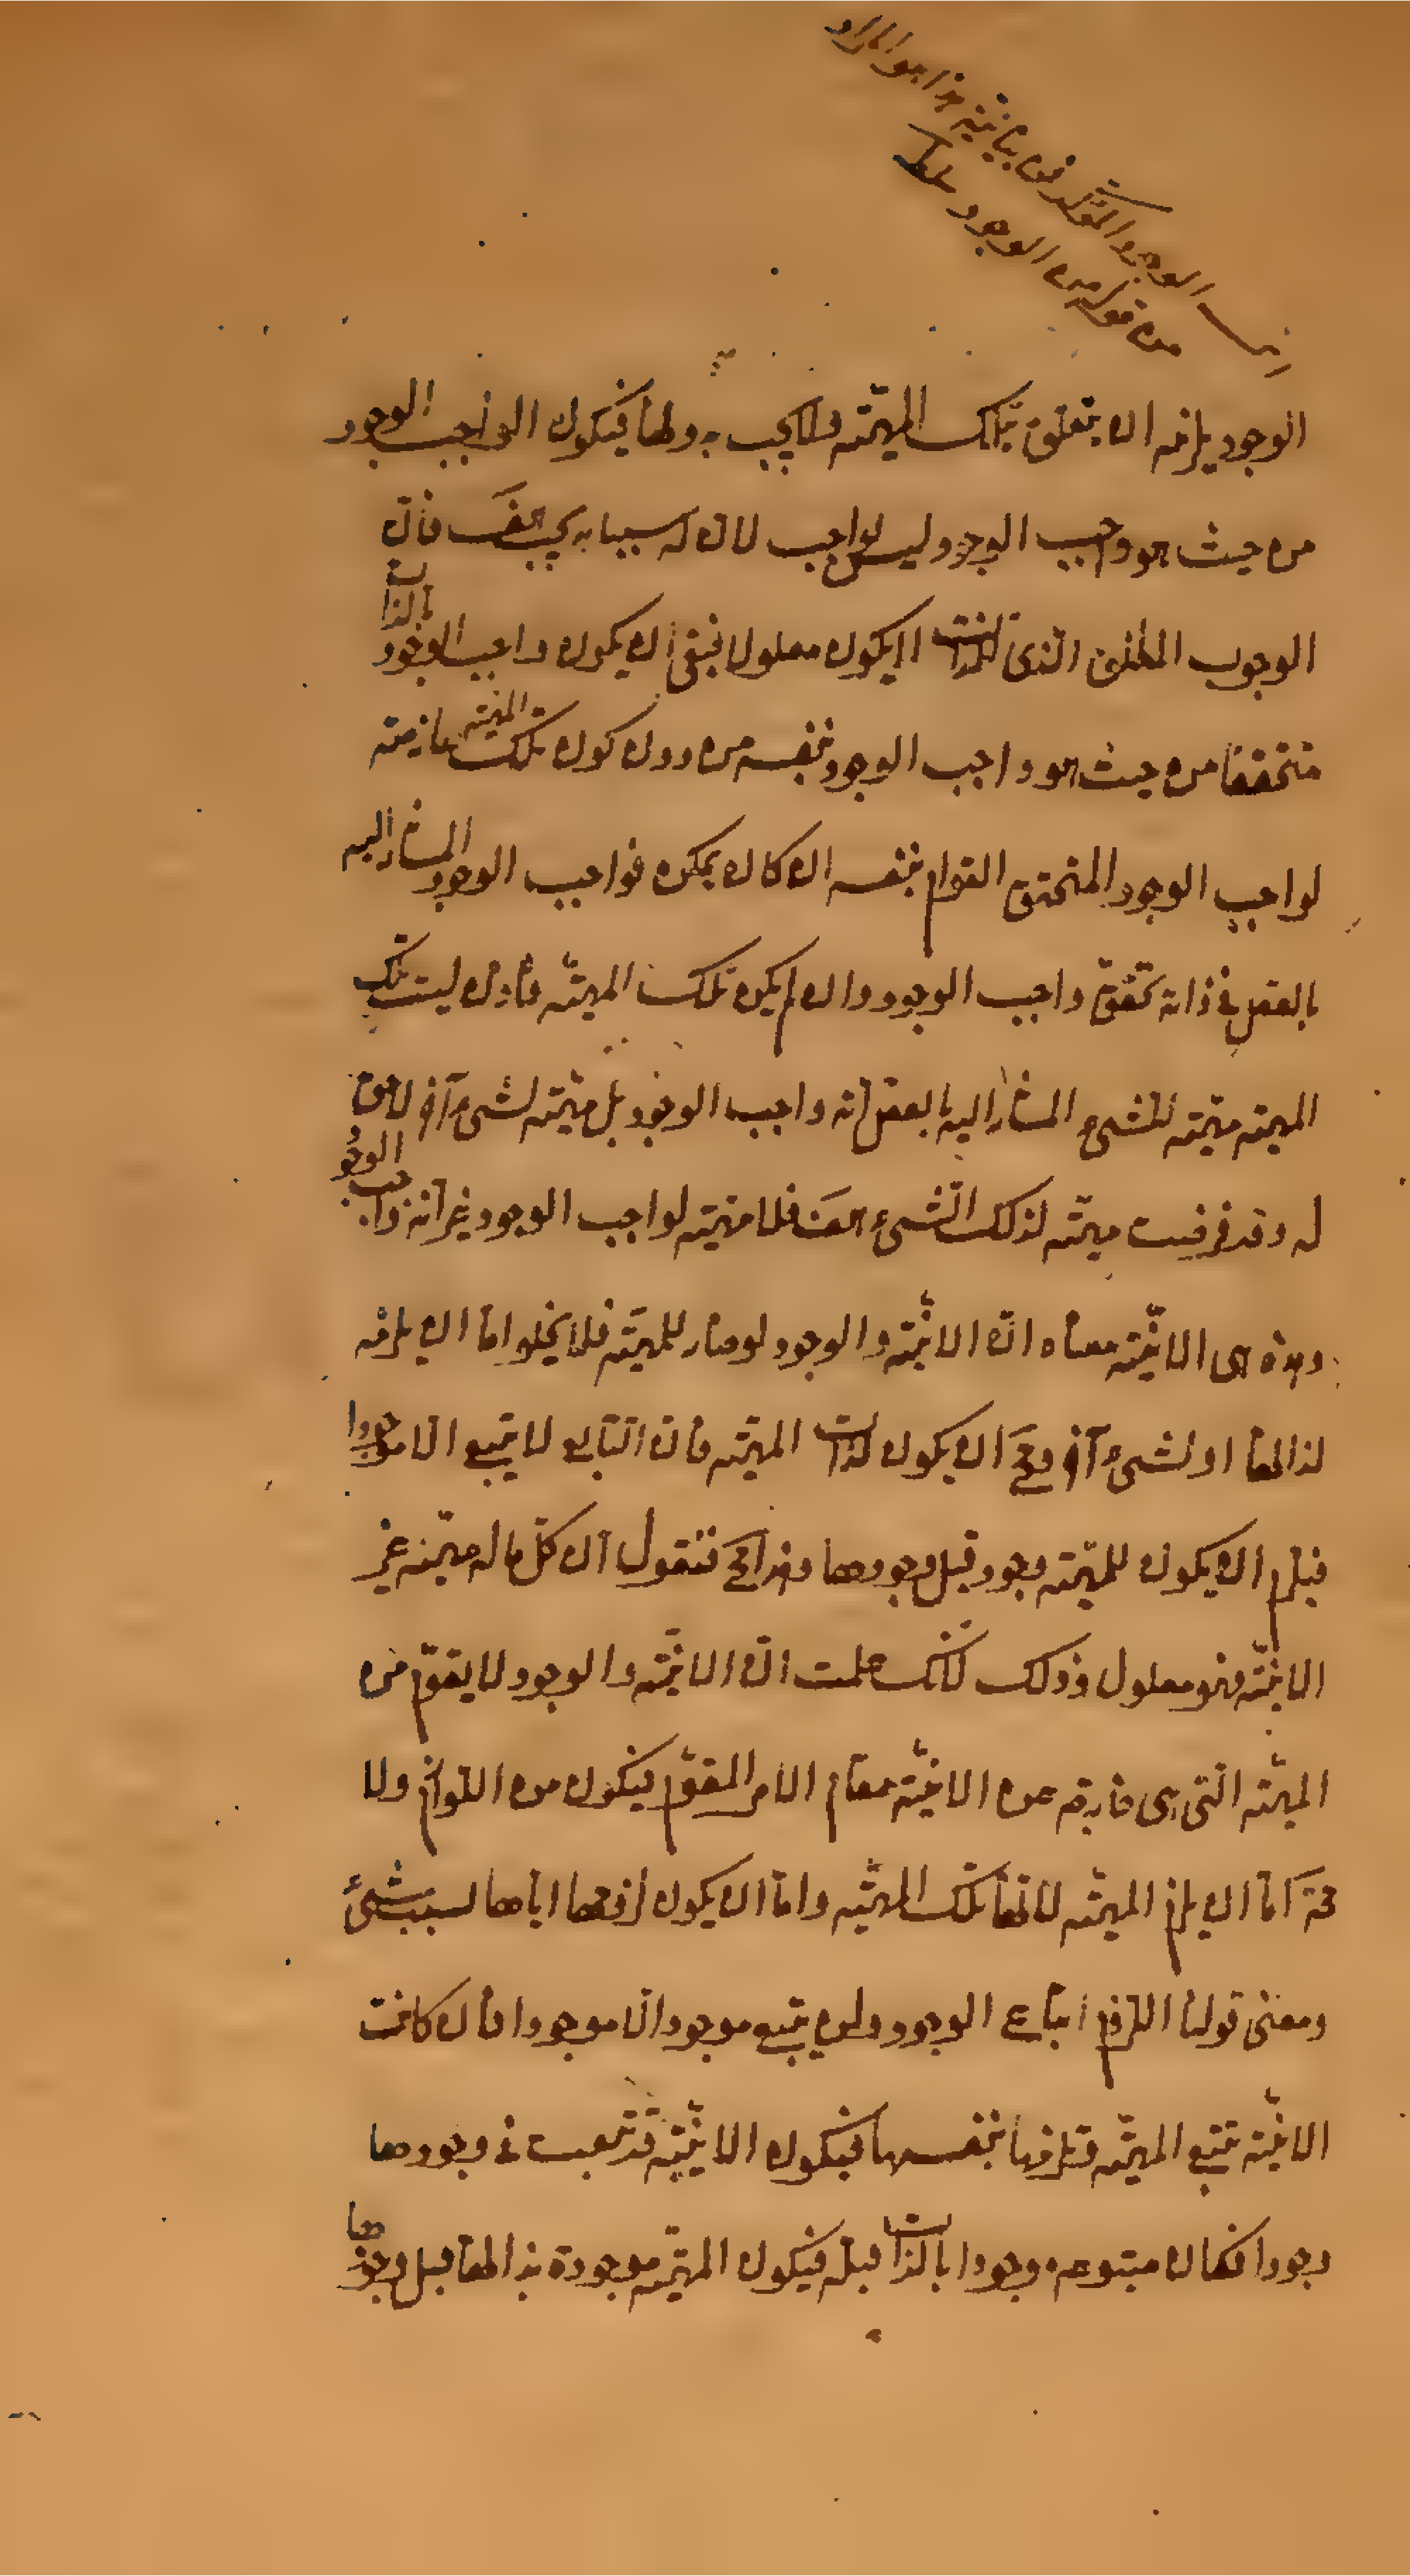 انية الوجود المتأكد فمن بيانية هذا هو المراد
من قوله من الوجود سلمه
الوجود يلزمه ان يتعلق بتلك المهيّة ولا يجب بدونها فيكون الواجب الوجود
من حيث هو واجب الوجود ليس بواجب لان له سببا به يجب هف فان
الوجوب المطلق الذى بالذات لا يكون معلولا فبقى ان يكون واجب الوجود بالذات
متحققا من حيث هو واجب الوجود بنفسه من دون كون تلك المهيّة عارضة
لواجب الوجود المتحقق القوام بنفسه ان كان يمكن فواجب الوجود المشار اليه
بالعقل فى ذاته تحقق واجب الوجود وان لم يكن تلك المهيّة فاذن ليست تلك
المهية مهيّة للشىء المشار اليه بالعقل انه واجب الوجود بل مهيّة لشىء آخر لاحق
له وقد فرضت مهيّة لذلك الشىء هف فلا مهية لواجب الوجود غير انه واجب الوجود
وهذه هى الانيّة معناه ان الانيّة والوجود لو صار للمهيّة فلا يخلو اما ان يلزمه
لذاتها او لشىء آخر ومح ان يكون لذات المهيّة فان التابع لا يتبع الا موجودا
فيلزم ان يكون للمهيّة وجود قبل وجودها وهذا مح فنقول ان كل ما له مهيّة غير
الانيّة فهو معلول وذلك لانك علمت ان الانيّة والوجود لا يقوم من
المهيّة التى هى خارجة عن الانيّة مقام الامر المقوّم فيكون من اللوازم ولا
يخ اما ان يلزم المهيّة لانها تلك المهيّة واما ان يكون لزومها اياها بسبب شىء
ومعنى قولنا اللزوم اتباع الوجود ولن يتبع موجود الا موجودا فان كانت
الانيّة تتبع المهيّة وتلزمها بنفسها فيكون الانيّة قد تبعت فى وجودها
وجودا فكان متبوعه موجودا بالذات قبله فيكون المهيّة موجودة بذاتها قبل وجودها